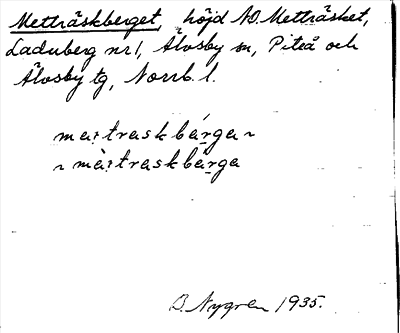 Metträskberget, höjd NO. Metträsket,
Laduberg nr 1, Älvsby sn, Piteå och
Älvsby tg, Norrb. l.
ma:traskbárga ~
~ mà:traskbárga
B. Nygren 1935.